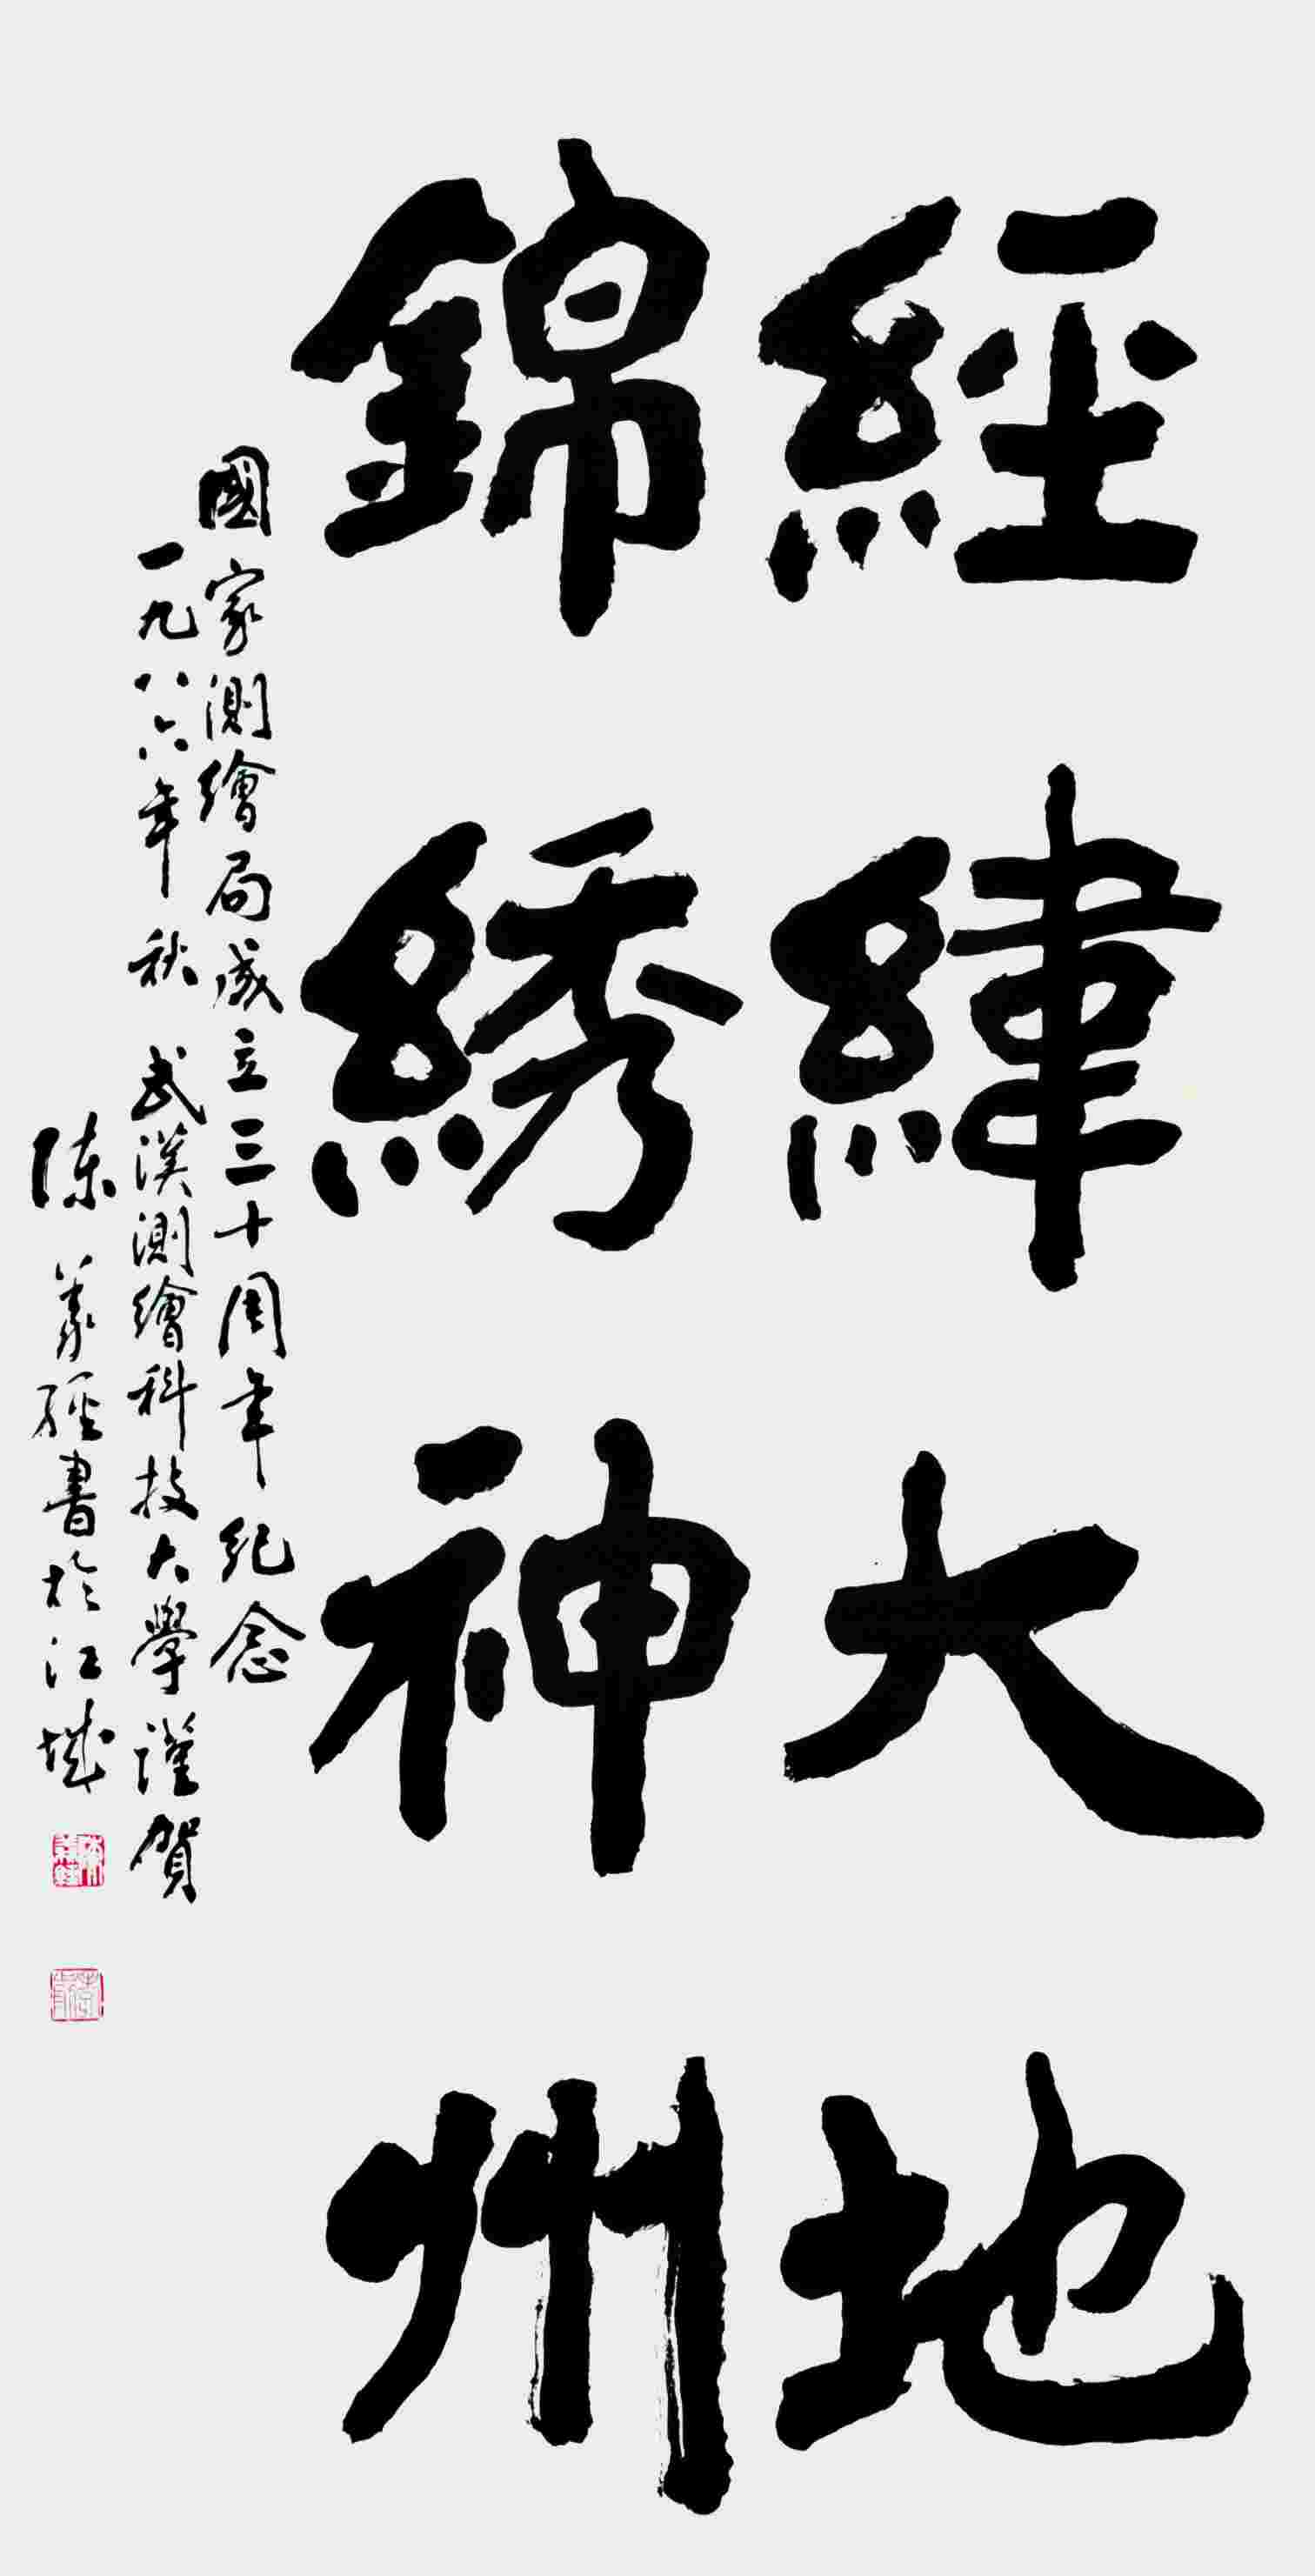 經緯大地
錦綉神州
國家測繪局成立三十周年纪念
一九八六年秋 武漢測繪科技大學謹賀
陳義經書於江城